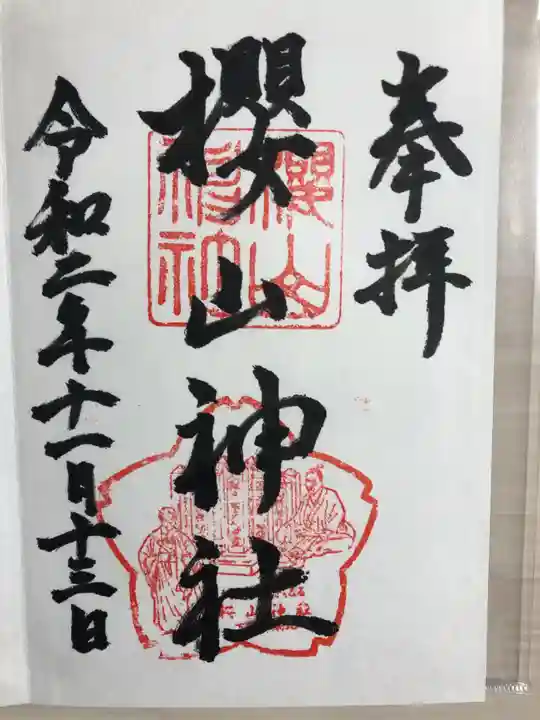 奉拝
櫻山神社
令和二年十一月十三日